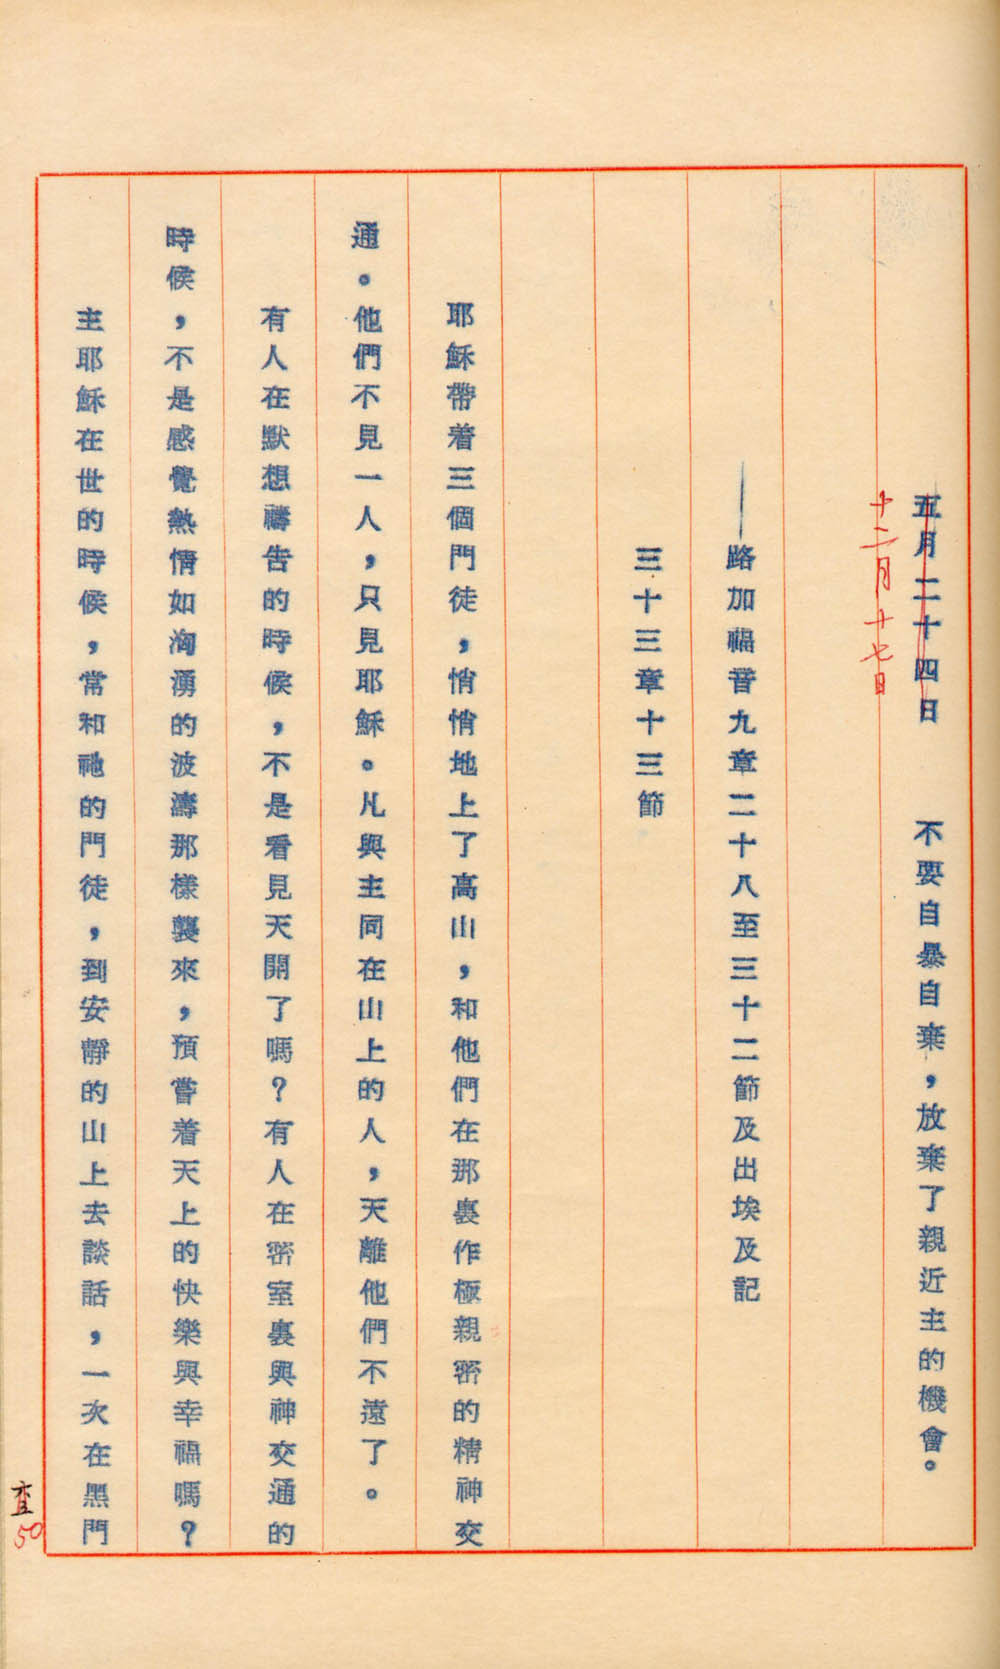 五月二十四日　　不要自暴自棄，放棄了親近主的機會。
十二月十七日
——路加福音九章二十八至三十二節及出埃及記
三十三章十三節
耶穌帶着三個門徒，悄悄地上了高山，和他們在那裏作極親密的精神交
通。他們不見一人，只見耶穌。凡與主同在山上的人，天離他們不遠了。
有人在默想禱告的時候，不是看見天開了嗎？有人在密室裏與神交通的
時候，不是感覺熱情如洶湧的波濤那樣襲來，預嘗着天上的快樂與幸福嗎？
主耶穌在世的時候，常和祂的門徒，到安靜的山上去談話，一次在黑門
50